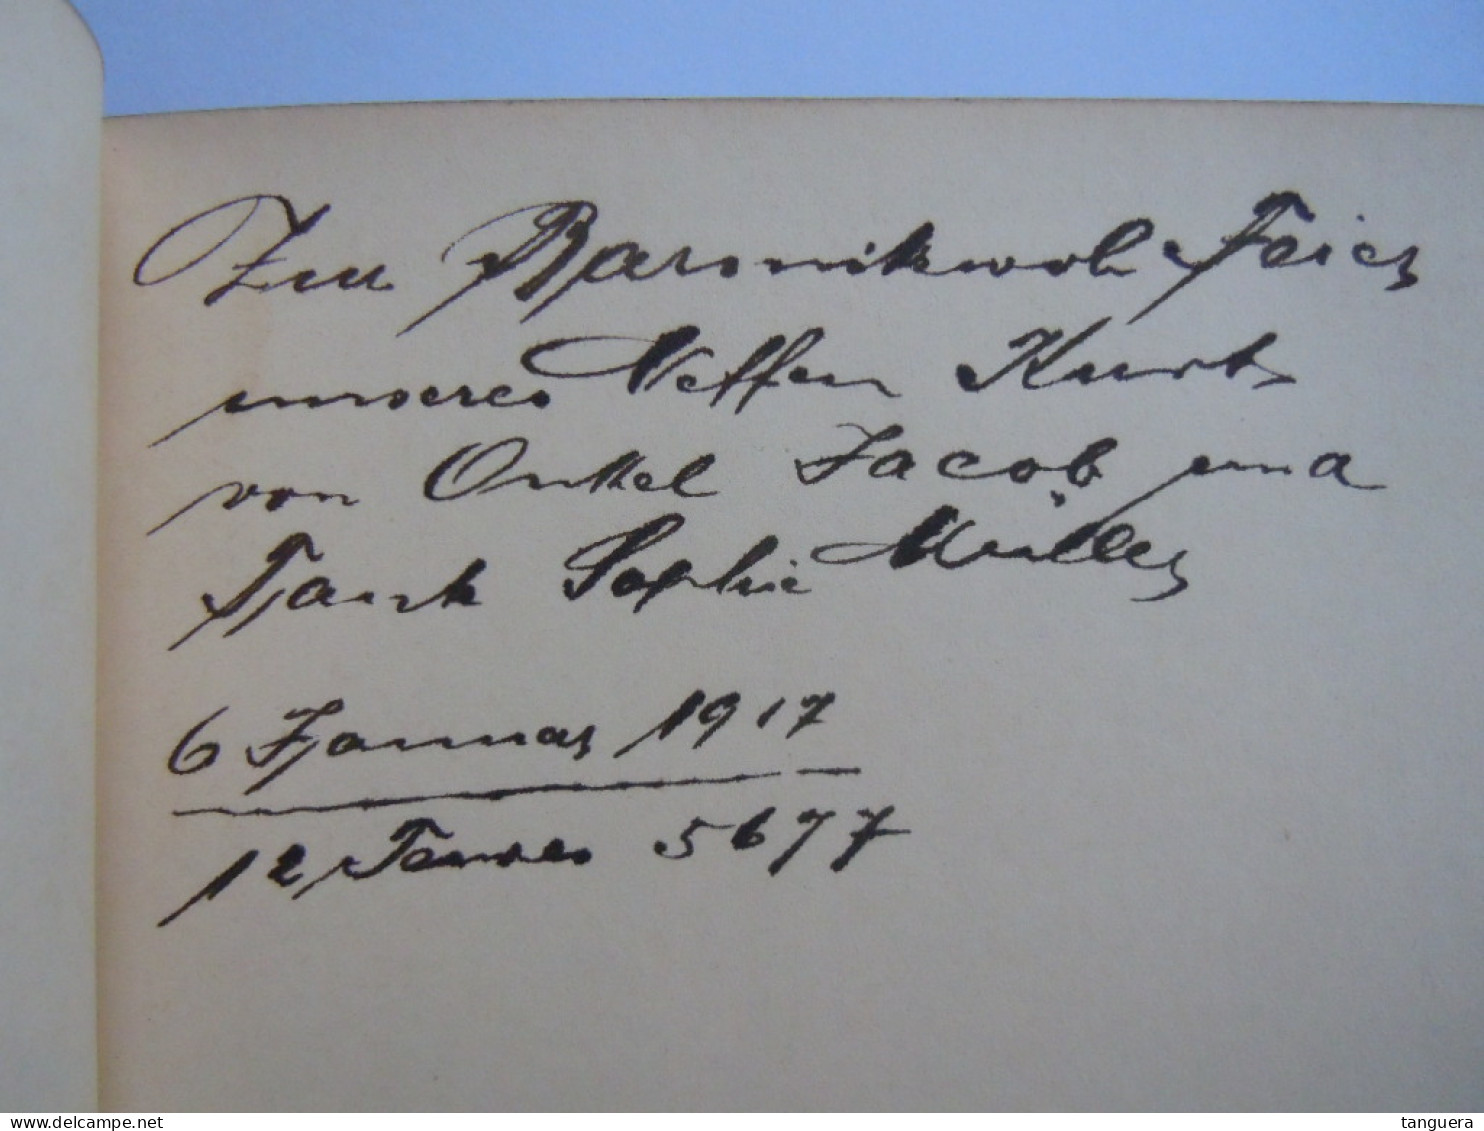 Zur Barmikwoh Feier
unseres Neffen Kurt
von Onkel Jacob und
Sophie Müller
6 Januar 1917
12 Tewes 5677
delcampe.net
tanguera